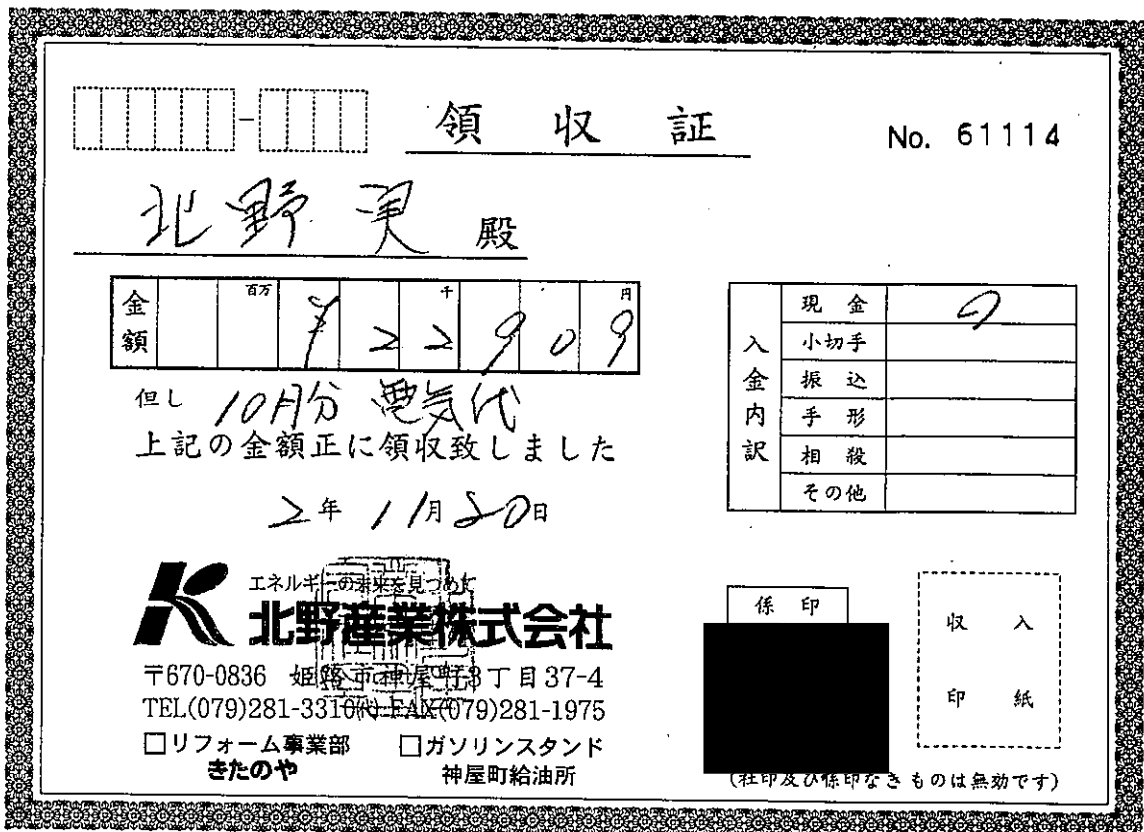 領収証
No. 61114
北野実 殿
金額 百万 千 円
¥22909
但し 10月分 電気代
上記の金額正に領収致しました
2年 11月20日
入金内訳
現金
小切手
振込
手形
相殺
その他
エネルギーの未来を見つめて
北野産業株式会社
〒670-0836 姫路市神屋町3丁目37-4
TEL(079)281-3310㈹ FAX(079)281-1975
□リフォーム事業部 □ガソリンスタンド
きたのや 神屋町給油所
係印
収入
印紙
(社印及び係印なきものは無効です)